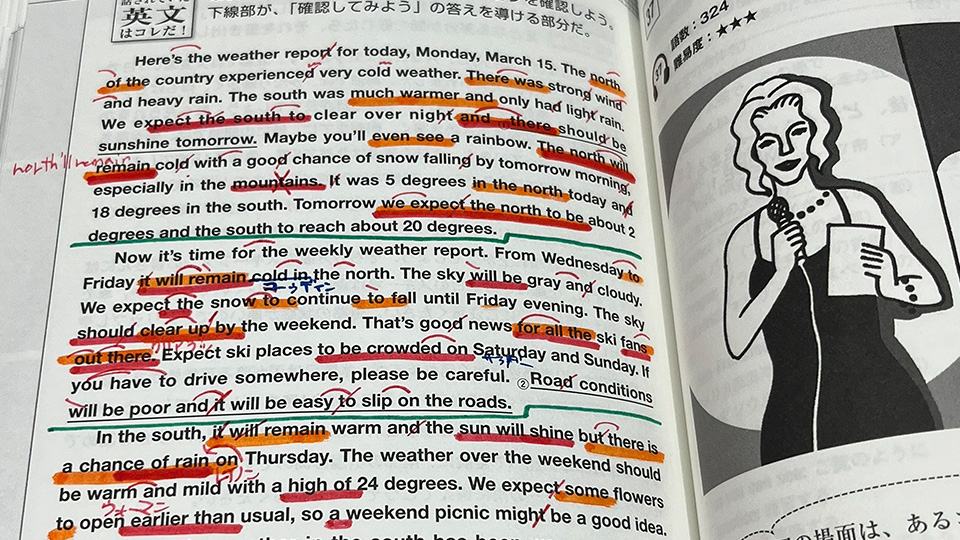 英文
はコレだ!
を確認しよう。
下線部が、「確認してみよう」の答えを導ける部分だ。
Here's the weather report for today, Monday, March 15. The north
of the country experienced very cold weather. There was strong wind
and heavy rain. The south was much warmer and only had light rain.
We expect the south to clear over night and there should be
sunshine tomorrow. Maybe you'll even see a rainbow. The north will
north'll remain
remain cold with a good chance of snow falling by tomorrow morning,
especially in the mountains. It was 5 degrees in the north today and
18 degrees in the south. Tomorrow we expect the north to be about 2
degrees and the south to reach about 20 degrees.
Now it's time for the weekly weather report. From Wednesday to
Friday it will remain cold in the north. The sky will be gray and cloudy.
コーゥディン
We expect the snow to continue to fall until Friday evening. The sky
should clear up by the weekend. That's good news for all the ski fans
out there. Expect ski places to be crowded on Saturday and Sunday. If
you have to drive somewhere, please be careful. ②Road conditions
will be poor and it will be easy to slip on the roads.
In the south, it will remain warm and the sun will shine but there is
a chance of rain on Thursday. The weather over the weekend should
be warm and mild with a high of 24 degrees. We expect some flowers
to open earlier than usual, so a weekend picnic might be a good idea.
37
語数:324
難易度:★★★
37
の場面は、ある